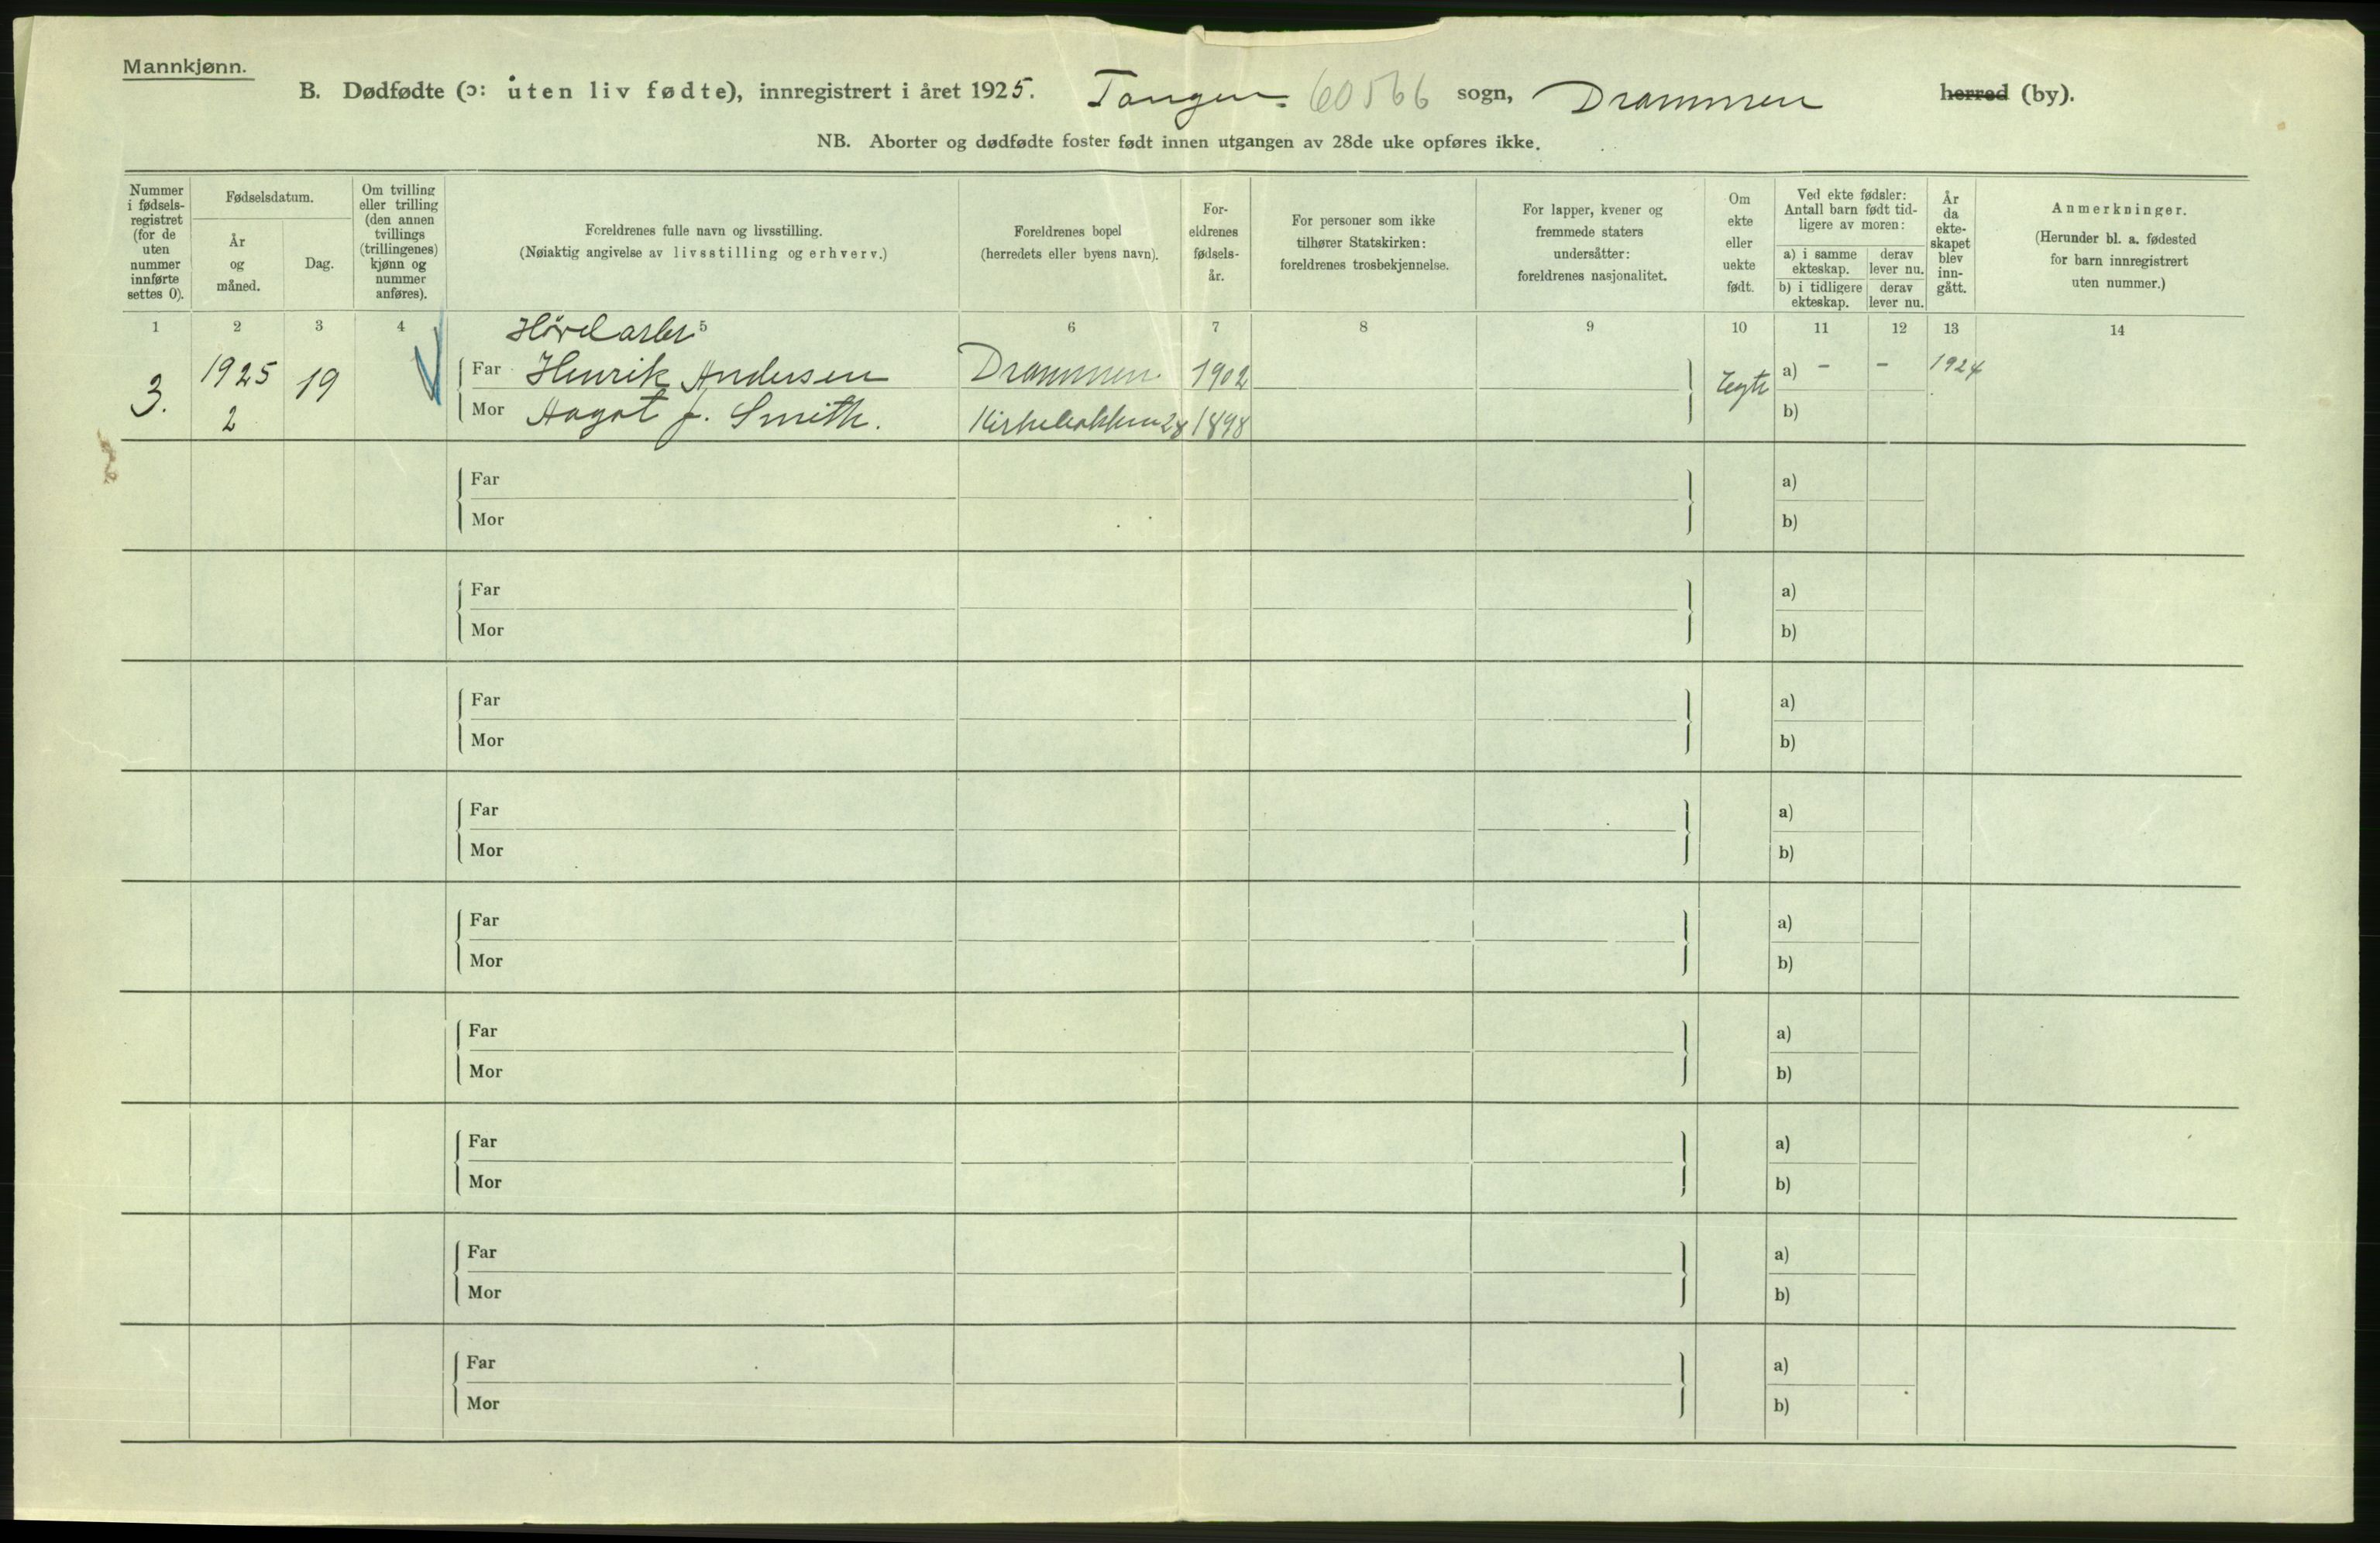 Mannkjønn.
B. Dødfødte (ɔ: uten liv fødte), innregistrert i året 1925. Tangen 60566 sogn, Drammen herred (by).
NB. Aborter og dødfødte foster født innen utgangen av 28de uke opføres ikke.
Nummer i fødsels-registret (for de uten nummer innførte settes 0).
Fødselsdatum.
År og måned.
Dag.
Om tvilling eller trilling (den annen tvillings (trillingenes) kjønn og nummer anføres).
Foreldrenes fulle navn og livsstilling.
(Nøiaktig angivelse av livsstilling og erhverv.)
Foreldrenes bopel
(herredets eller byens navn).
For-eldrenes fødsels-år.
For personer som ikke tilhører Statskirken: foreldrenes trosbekjennelse.
For lapper, kvener og fremmede staters undersåtter: foreldrenes nasjonalitet.
Om ekte eller uekte født.
Ved ekte fødsler: Antall barn født tid-ligere av moren:
a) i samme ekteskap.
derav lever nu.
b) i tidligere ekteskap.
derav lever nu.
År da ekte-skapet blev inn-gått.
Anmerkninger.
(Herunder bl. a. fødested for barn innregistrert uten nummer.)
1 2 3 4 5 6 7 8 9 10 11 12 13 14
Hövelarbr
3. 1925 19 Far Henrik Andersen Drammen 1902 Egte a) - - 1924
2 Mor Aagot f. Smith. Kirkebakken 28 1898 b)
Far a)
Mor b)
Far a)
Mor b)
Far a)
Mor b)
Far a)
Mor b)
Far a)
Mor b)
Far a)
Mor b)
Far a)
Mor b)
Far a)
Mor b)
Far a)
Mor b)